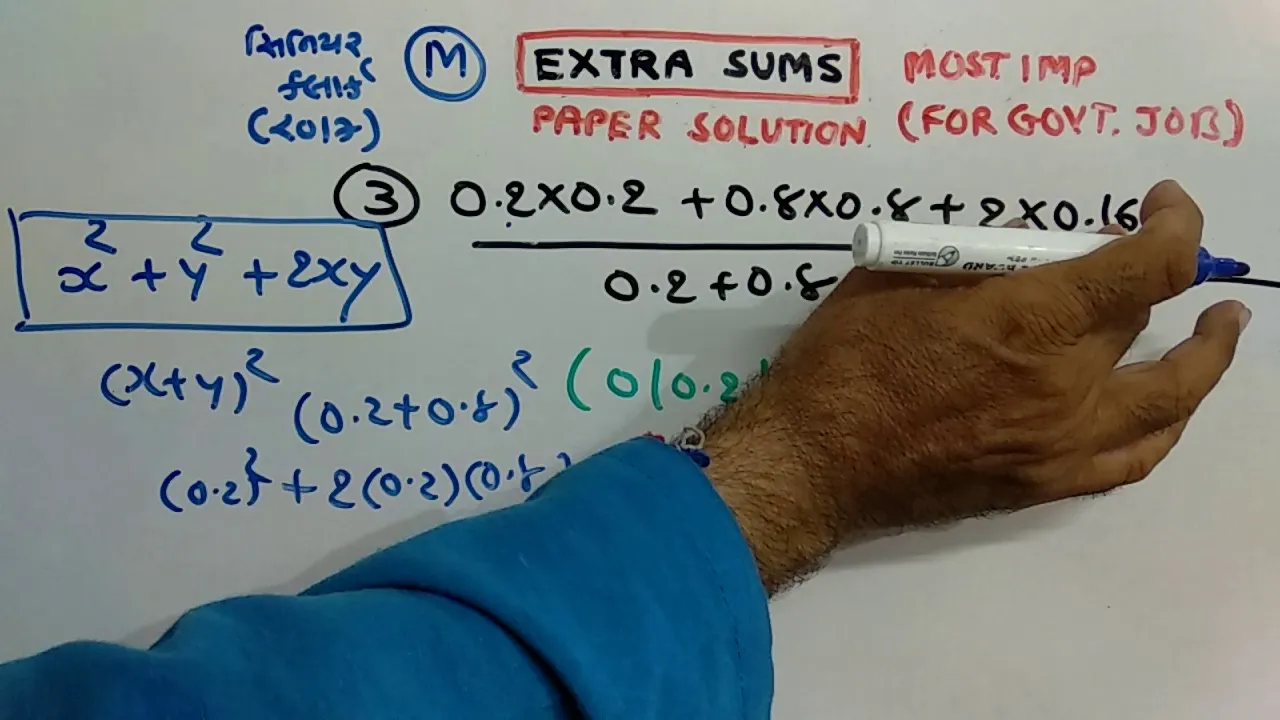 સિનિયર
ક્લાર્ક
(૨૦૧૭)
M
EXTRA SUMS
PAPER SOLUTION
MOST IMP
(FOR GOVT. JOB)
3 0.2×0.2 + 0.8×0.8 + 2×0.16
0.2 + 0.8
x² + y² + 2xy
(x+y)² (0.2+0.8)² (0/0.2
(0.2)² + 2(0.2)(0.8